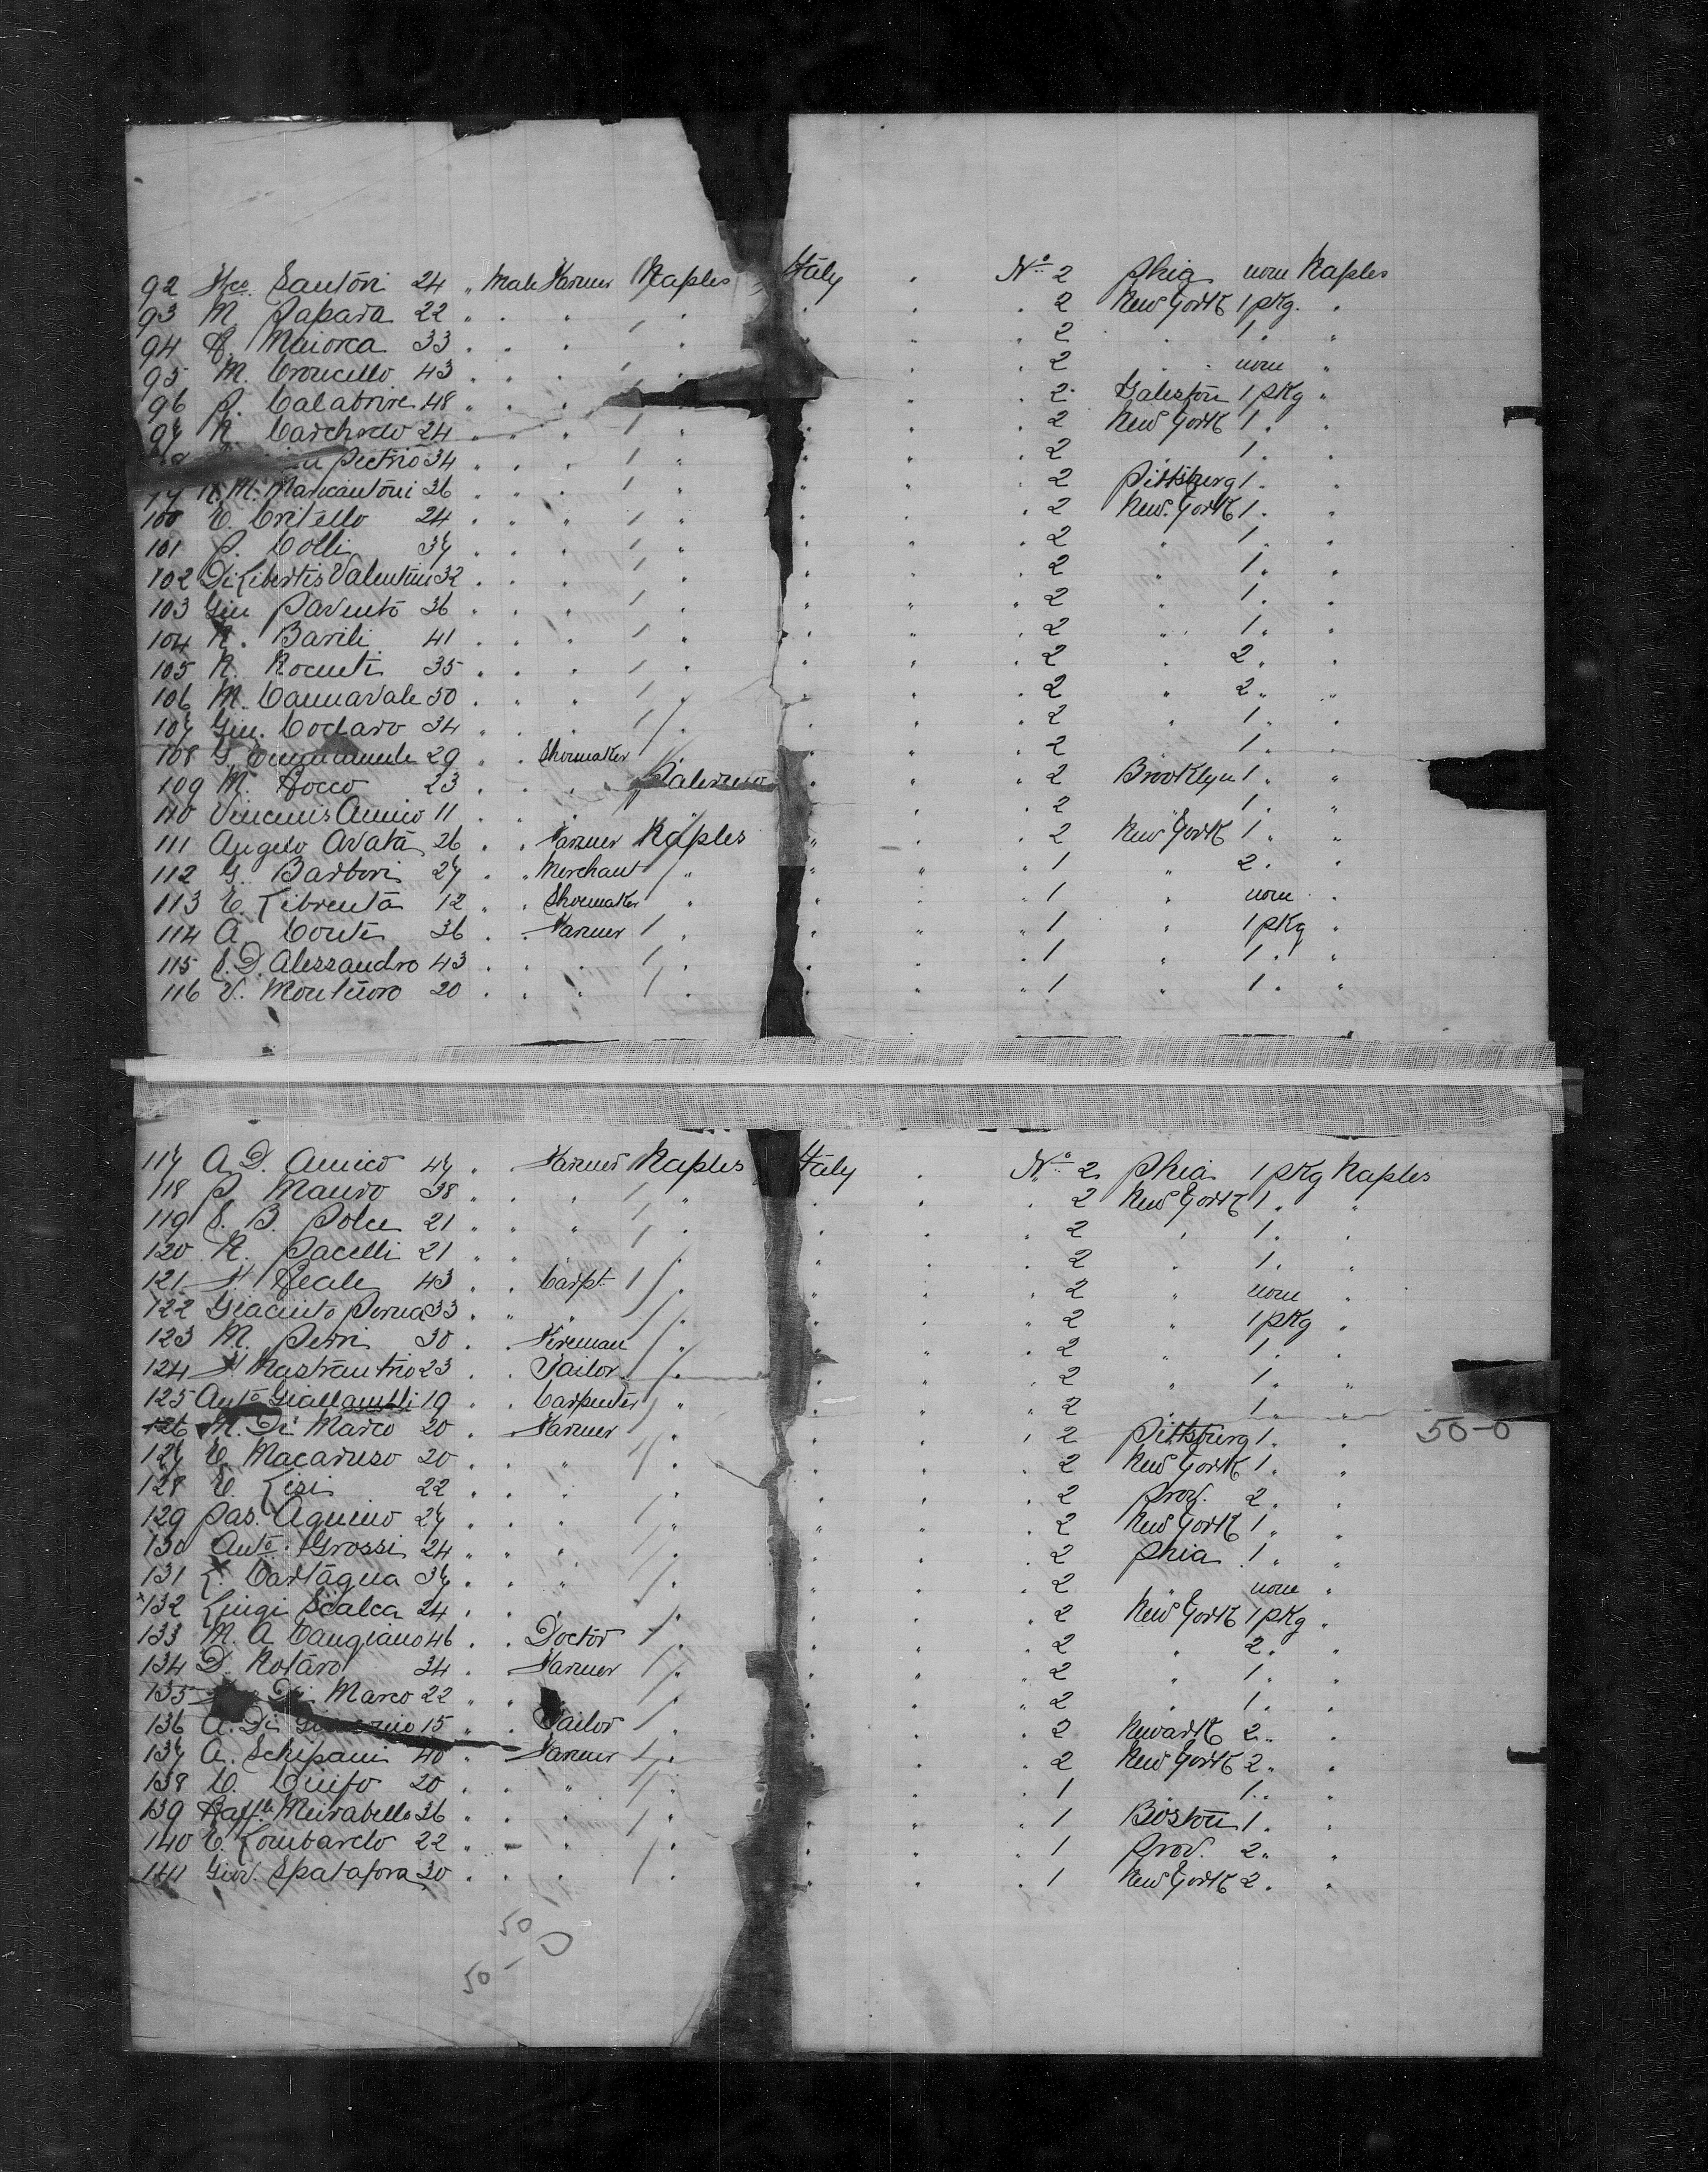 92 Fco. Santori 24 " Male Farmer Naples Italy " No. 2 Phia none Naples
93 M. Papara 22 " " " / " " " " 2 New York 1 pkg. "
94 R. Maiorca 33 " " " / " " " " 2 " 1 " "
95 M. Croncello 43 " " " / " " " 2 " none "
96 P. Calabrire 48 " " " " " 2 Galeston 1 pkg "
97 N. 24 " " " / " " " " 2 New York 1 " "
Pietrio 34 " " " / " " " " 2 " 1 " "
N. M. Maricantoni 26 " " " / " " " " 2 Pittsburg 1 " "
100 C. Critello 24 " " " / " " " " 2 New York 1 " "
101 P. Colli 37 " " " / " " " " 2 " 1 " "
102 Di Libertis Valentini 32 " " " / " " " " 2 " 1 " "
103 Giu Pavento 36 " " " / " " " " 2 " 1 " "
104 N. Barili 41 " " " / " " " " 2 " 1 " "
105 N. 35 " " " / " " " " 2 " 2 " "
106 M. Cannavale 50 " " " / " " " " 2 " 2 " "
107 Giu. Codaro 34 " " " / " " " " 2 " 1 " "
108 G. Emmanuele 29 " " Shoemaker " " " 2 " 1 " "
109 M. Rocco 23 " " " Palermo " " " 2 Brooklyn 1 " "
110 Vincenis Amico 11 " " " " " " " 2 " 1 " "
111 Angelo Avata 26 " " Farmer Naples " " " 2 New York 1 " "
112 G. Barbori 27 " " Merchant / " " " " 1 " 2 " "
113 C. Librenta 12 " " Shoemaker " " " " 1 " none "
114 A. Conte 36 " " Farmer / " " " " 1 " 1 pkg "
115 S. D. Alessandro 43 " " " / " " " " 1 " 1 " "
116 V. Montuoro 20 " " " / " " " " 1 " 1 " "
117 A. D. Amico 47 " " Farmer Naples Italy " No. 2 Phia 1 pkg Naples
118 P. Mauro 38 " " " / " " " " 2 New York 1 " "
119 S. B. Polce 21 " " " / " " " " 2 " 1 " "
120 N. Pacelli 21 " " " / " " " " 2 " 1 " "
121 F. Reale 43 " " Carpt / " " " " 2 " none "
122 Giacinto Perna 33 " " " / " " " " 2 " 1 pkg "
123 M. Petri 30 " " Fireman / " " " " 2 " 1 " "
124 F. Nastrantrio 23 " " Tailor / " " " " 2 " 1 " "
125 Anto. 19 " " Carpenter / " " " " 2 " 1 " "
126 M. Di Marco 20 " " Farmer / " " " " 2 Pittsburg 1 " " 50-0
127 C. Macaruso 20 " " " / " " " " 2 New York 1 " "
128 C. Lisi 22 " " " / " " " " 2 Prov. 2 " "
129 Pas. Aquino 27 " " " / " " " " 2 New York 1 " "
130 Anto. Grossi 24 " " " / " " " " 2 Phia 1 " "
131 L. Cartagna 37 " " " / " " " " 2 " none "
x132 Luigi Scalca 24 " " " / " " " " 2 New York 1 pkg "
133 M. A. Cangiano 46 " " Doctor / " " " " 2 " 2 " "
134 D. Notaro 34 " " Farmer / " " " " 2 " 1 " "
135 Di Marco 22 " " / " " " " 2 " 1 " "
136 A. Di 15 " " Tailor / " " " " 2 Newark 2 " "
137 A. Schipani 40 " " Farmer / " " " " 2 New York 2 " "
138 C. Cuifo 20 " " " / " " " " 1 " 1 " "
139 Raffle Meirabello 36 " " " / " " " " 1 Boston 1 " "
140 C. Lombardo 22 " " " / " " " " 1 Prov. 2 " "
141 Giov. Spatafora 30 " " " / " " " " 1 New York 2 " "
50
50 - 0